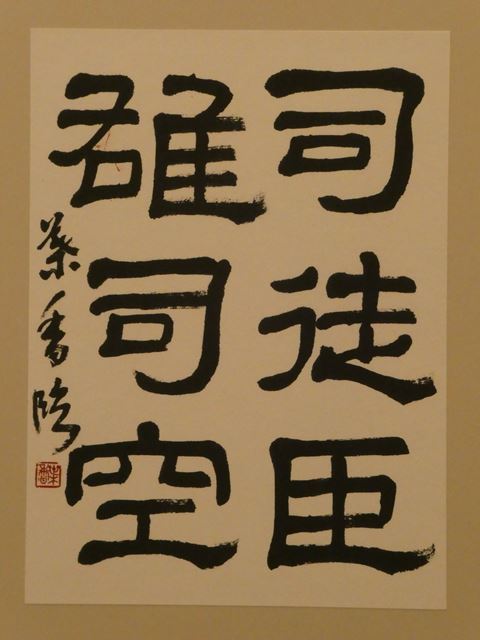 司徒臣
雄司空
葉香臨